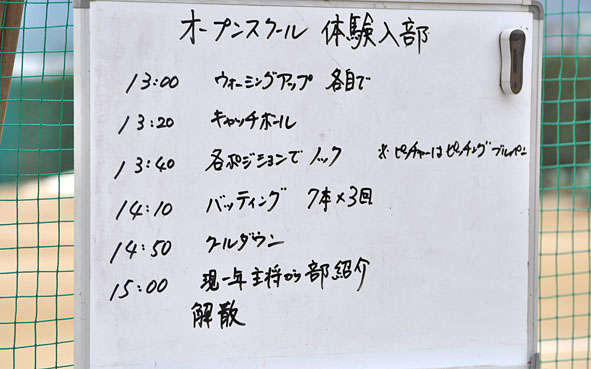 オープンスクール 体験入部
13:00 ウォーミングアップ 各自で
13:20 キャッチボール
13:40 各ポジションで ノック ※ピッチャーはピッチング ブルペン
14:10 バッティング 7本×3回
14:50 クールダウン
15:00 現一年主将から部紹介
解散